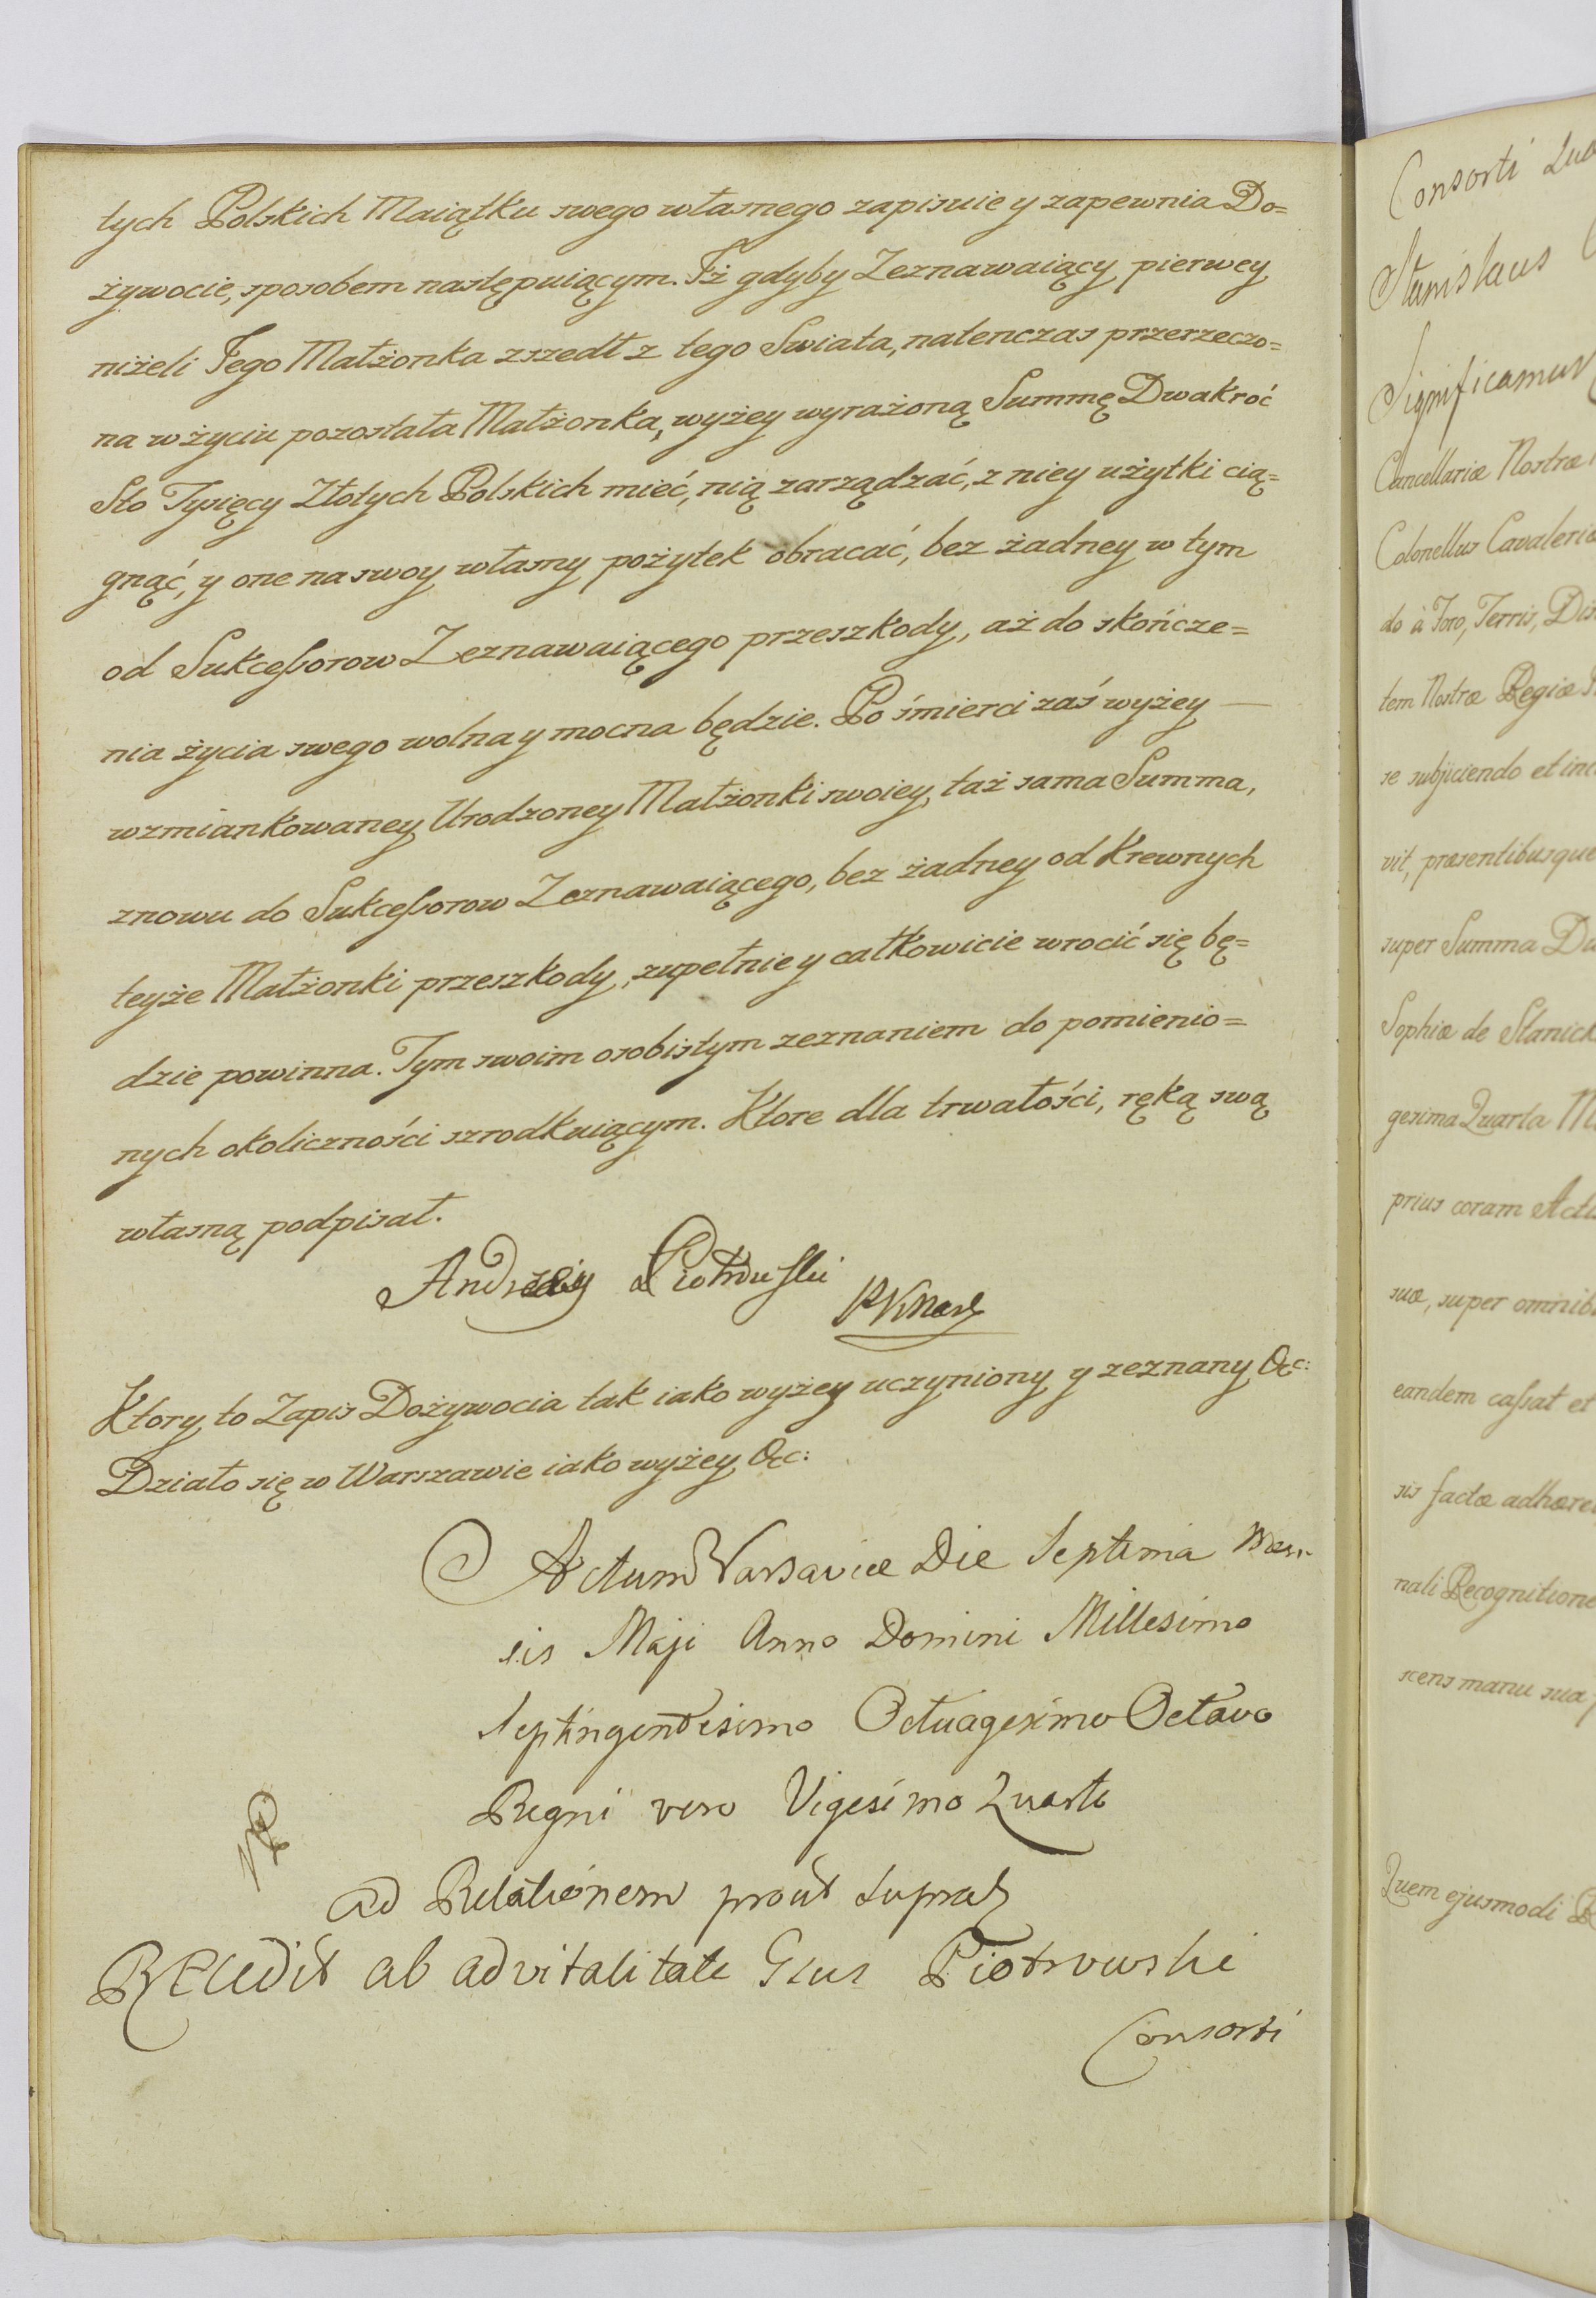 tych Polskich Maiątku swego własnego zapisuie y zapewnia Do=
żywocie, sposobem następuiącym. Iż gdyby Zeznawaiący pierwey
niżeli Jego Małżonka zszedł z tego Swiata, natenczas przerzeczo=
na w życiu pozostała Małżonka, wyżey wyrażoną Summę Dwakroć
Sto Tysięcy Złotych Polskich mieć, nią zarządzać, z niey użytki cią=
gnąć, y one na swoy własny pożytek obracać, bez żadney w tym
od Sukceßorow Zeznawaiącego przeszkody, aż do skończe=
nia życia swego wolna y mocna będzie. Po śmierci zaś wyżey —
wzmiankowaney Urodzoney Małżonki swoiey, taż sama Summa,
znowu do Sukceßorow Zeznawaiącego, bez żadney od Krewnych
teyże Małżonki przeszkody, zupełnie y całkowicie wrocić się bę=
dzie powinna. Tym swoim osobistym zeznaniem do pomienio=
nych okoliczności szrodkuiącym. Ktore dla trwałości, ręką swą
własną podpisał.
Andrzey Piotrowski
Ktory to Zapis Dożywocia tak iako wyżey uczyniony y zeznany &c:
Działo się w Warszawie iako wyżey &c:
Actum Varsaviæ Die Septima Men-
sis Maji Anno Domini Millesimo
Septingentesimo Octuagesimo Octavo
Regni vero Vigesimo Quarto
ad Relationem prout supra
Recedit ab advitalitate Gsus Piotrowski
Consorti
Consorti Suæ
Stanislaus
Significamus
Cancellariæ Nostræ
Colonellus Cavaleriæ
do à Foro, Terris, Dis
tem Nostræ Regiæ
se subjiciendo et inc
vit, præsentibusque
super Summa Du
Sophiæ de Stanick
gesima Quarta M
prius coram Actis
suæ, super omnib
eandem caſsat et
sis factæ adhære
nali Recognitione
scens manu sua
Quem ejusmodi R